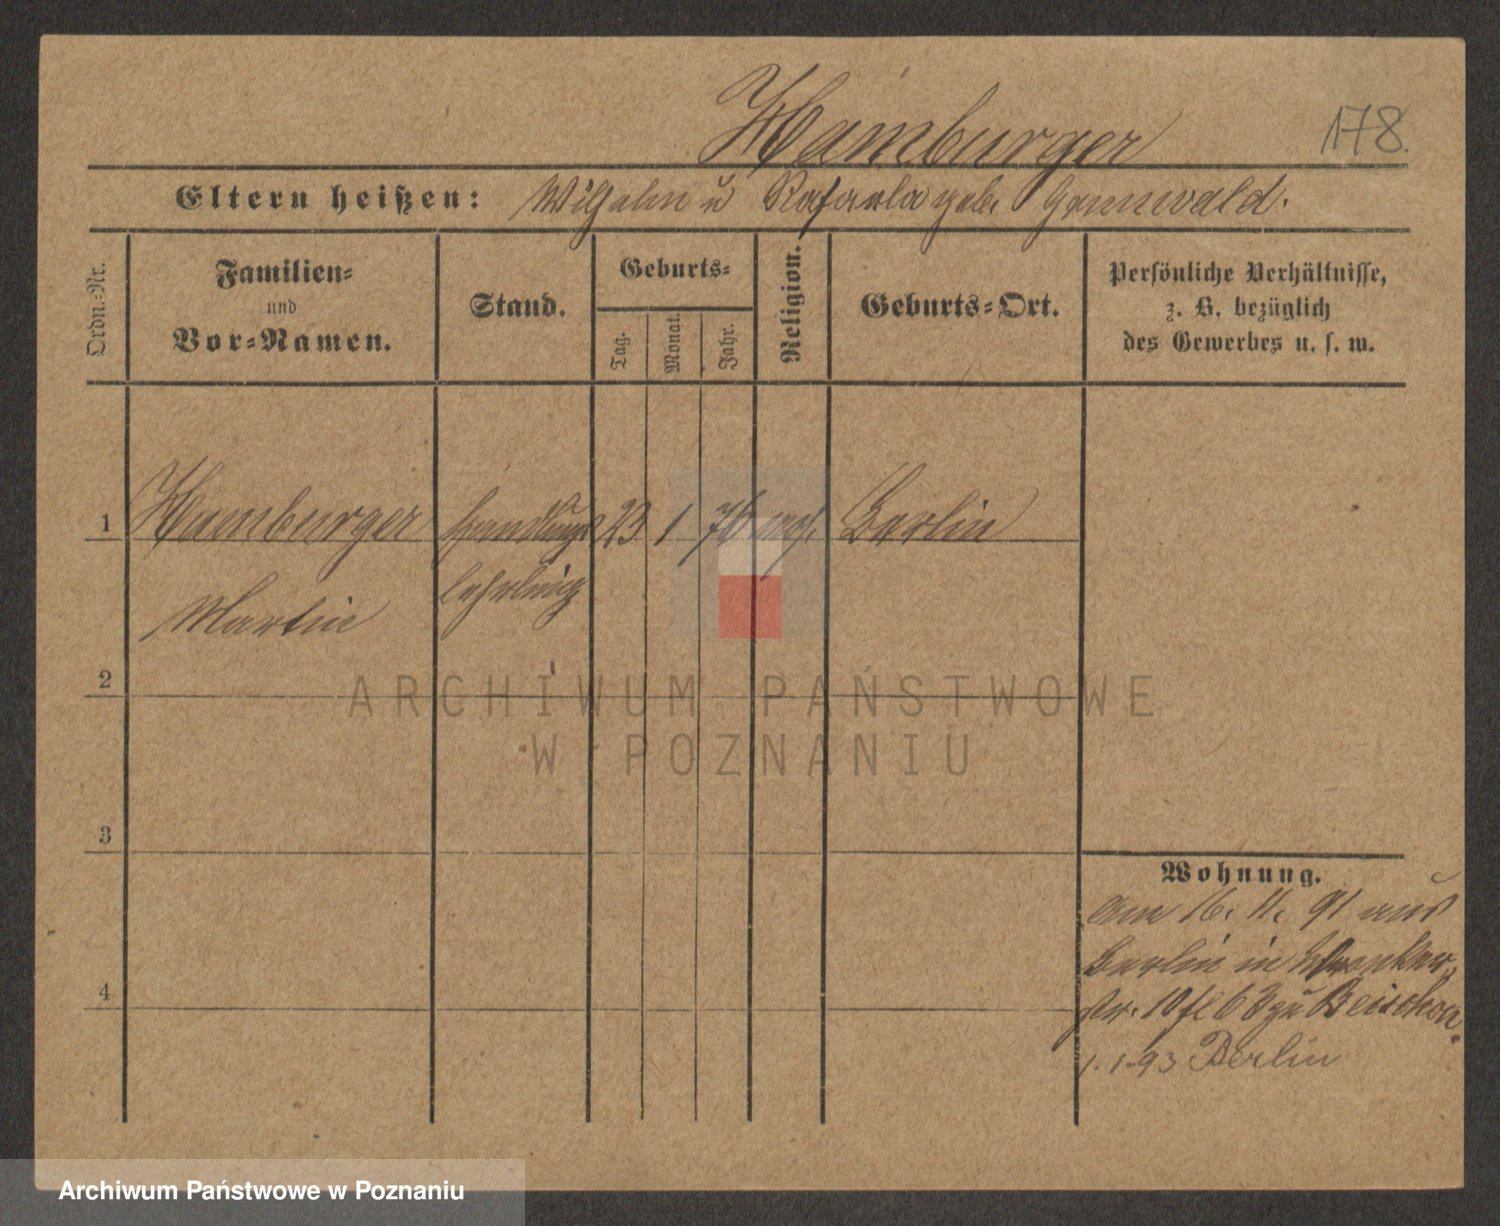 Hamburger
178.
Eltern heißen: Wilhelm u Rafaela geb. Grunwald.
Ordn.-Nr.
Familien-
und
Vor-Namen.
Stand.
Geburts-
Tag.
Monat.
Jahr.
Religion.
Geburts-Ort.
Persönliche Verhältnisse,
z. B. bezüglich
des Gewerbes u. s. w.
1 Hamburger Handlungs 23 1 76 mos. Berlin
Martin lehrling
2
3
4
Wohnung.
am 16. 11. 91 aus
Berlin in
str. 10 zu
1.1.93 Berlin
ARCHIWUM PAŃSTWOWE
W POZNANIU
Archiwum Państwowe w Poznaniu